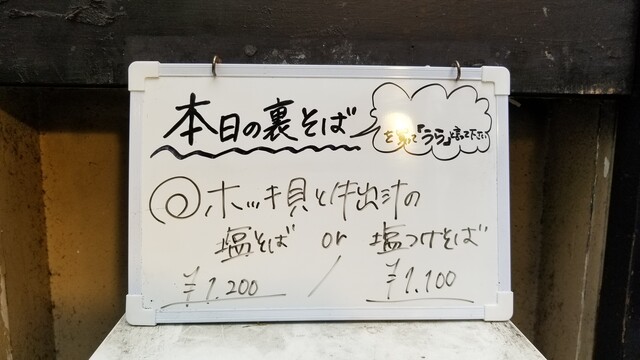 本日の裏そば
「うら」と言って下さい
ホッキ貝と牛出汁の
塩そば or 塩つけそば
¥1.200 / ¥1.100